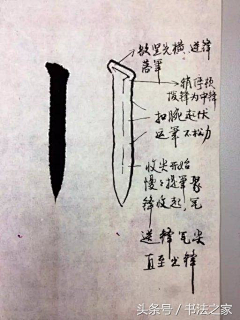 欲竖先横 逆锋
落笔
稍停顿
拨锋为中锋
扣腕起伏
运笔不松力
收尖开始
慢慢提笔 聚
锋收起 完
送锋完尖
直至尖锋
头条号 / 书法之家